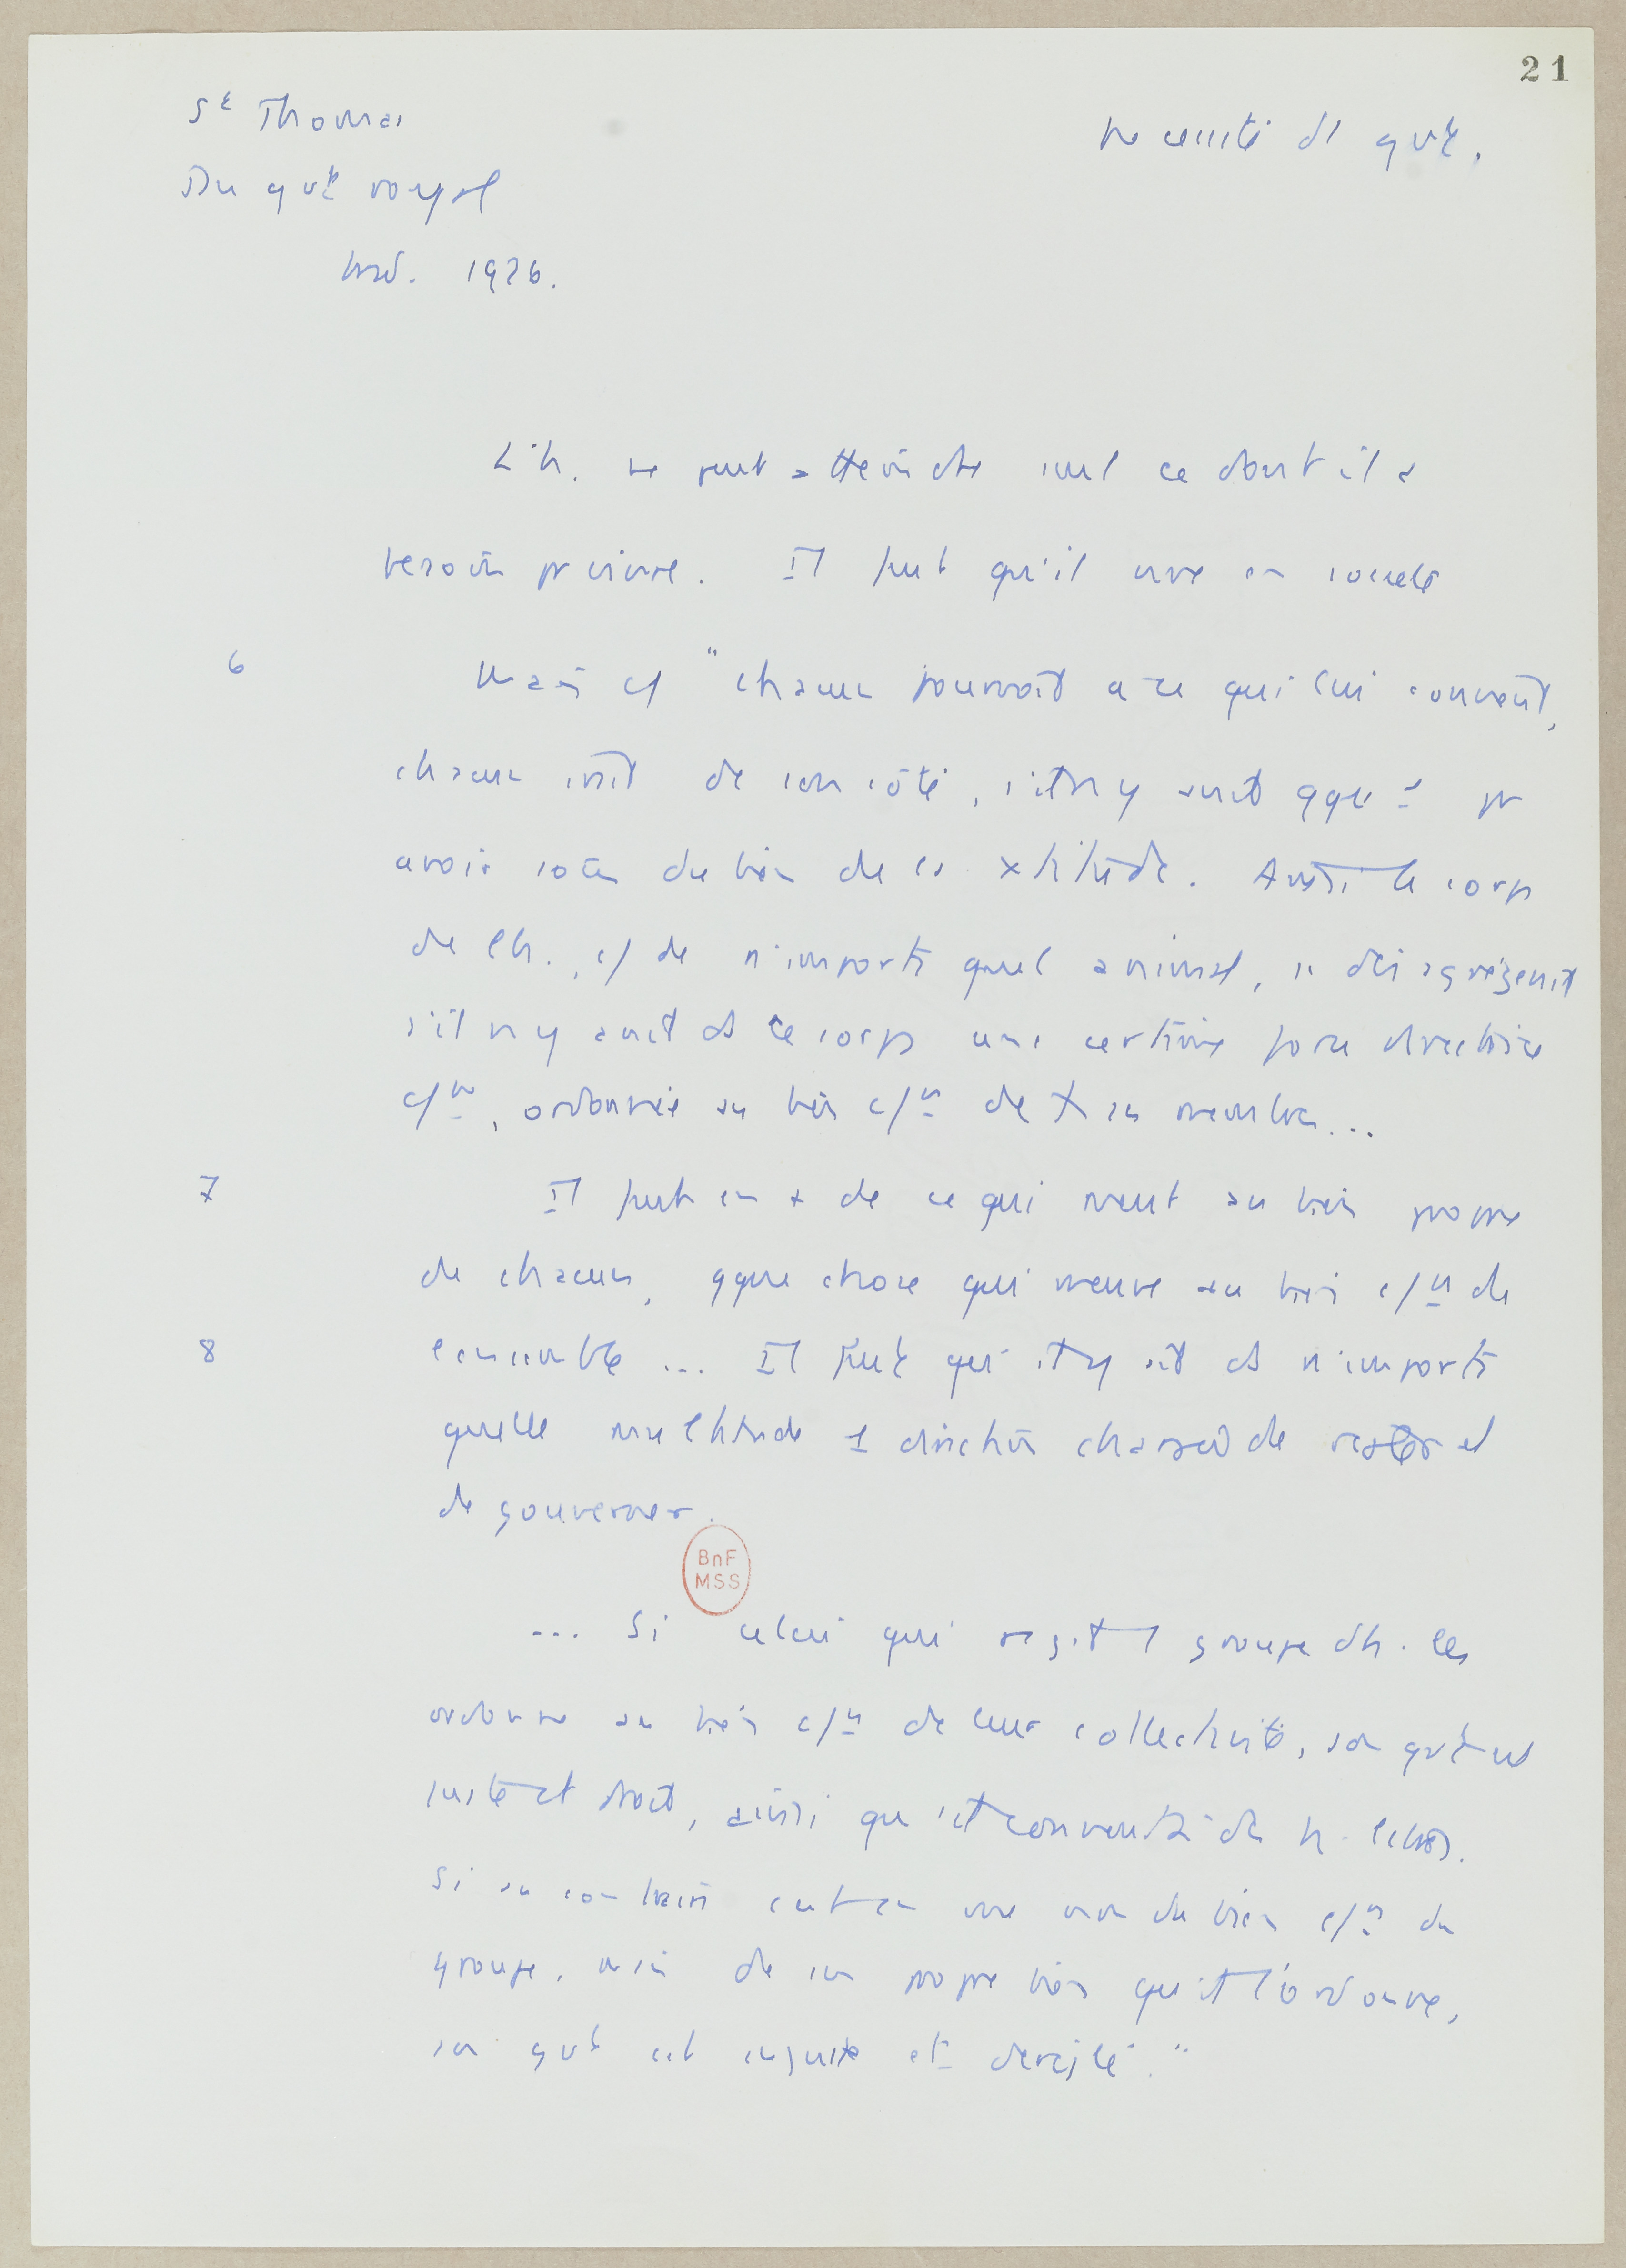 21
St Thomas
Necessité du gvt.
Du gvt royal
trad. 1926.
L'h. ne peut atteindre seul ce dont il a
besoin pr vivre. Il faut qu'il vive en société
6
Mais c/ "chacun pourvoit à ce qui lui convent,
chacun irait de son côté, s'il n'y avait qqu'1 pr
avoir soin du bien de la xtitude. Aussi le corps
de l'h., c/ de n'importe quel animal, se désagrégerait
s'il n'y avait ds ce corps une certaine force directrice
c/un, ordonnée au bien c/un de ts ses membres...
7
Il faut en + de ce qui meut au bien propre
de chacun, qque chose qui meuve au bien c/un de
8
l'ensemble ... Il faut qu'il y ait ds n'importe
quelle multitude 1 direction chargée de régler et
de gouverner.
BnF
MSS
... Si celui qui régit 1 groupe d'h. les
ordonne au bien c/un de leur collectivité, son gvt est
juste et droit, ainsi qu'il convenait à des h. libres.
Si au contraire c'est en vue non du bien c/un du
groupe, mais de son propre bien qu'il l'ordonne,
son gvt est injuste et déréglé."